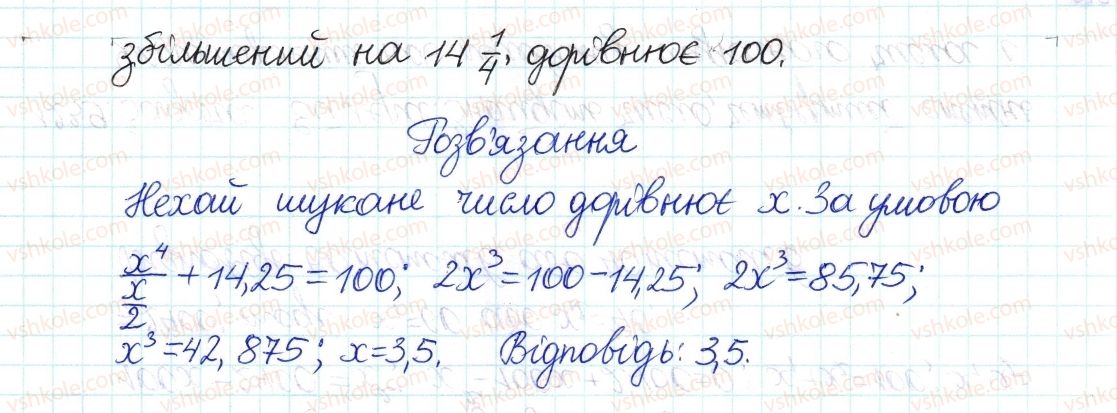 збільшений на 14 1/4, дорівнює 100.
Розв'язання
Нехай шукане число дорівнює x. За умовою
x⁴/(x/2) + 14,25 = 100; 2x³ = 100 - 14,25; 2x³ = 85,75;
x³ = 42,875; x = 3,5. Відповідь: 3,5.